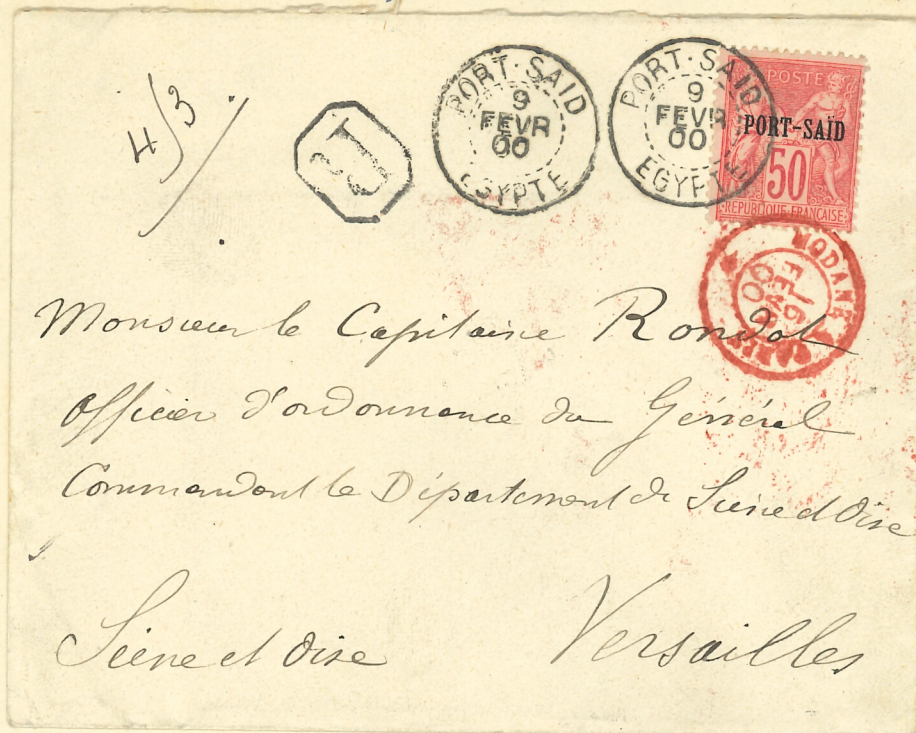 4/3
PORT-SAID
9
FEVR
00
EGYPTE
PORT-SAID
9
FEVR
00
EGYPTE
POSTE
PORT-SAÏD
50
REPUBLIQUE FRANÇAISE
MODANE
PARIS
FEVR
00
Monsieur le Capitaine Rondot
Officier d'ordonnance du Général
Commandant le Département de Seine et Oise
Seine et Oise
Versailles